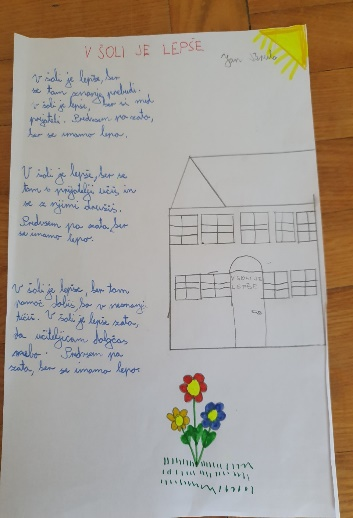 V ŠOLI JE LEPŠE
Jan
V šoli je lepše, ker
se tam znanje prebudi.
V šoli je lepše, ker si med
prijatelji. Predvsem pa zato,
ker se imamo lepo.
V šoli je lepše, ker se
tam s prijatelji učiš in
se z njimi družiš.
Predvsem pa zato, ker
se imamo lepo.
V šoli je lepše, ker tam
pomoč dobiš, ko v neznanju
tičiš. V šoli je lepše zato,
da učiteljicam dolgčas
ne bo. Predvsem pa
zato, ker se imamo lepo.
V ŠOLI JE
LEPŠE